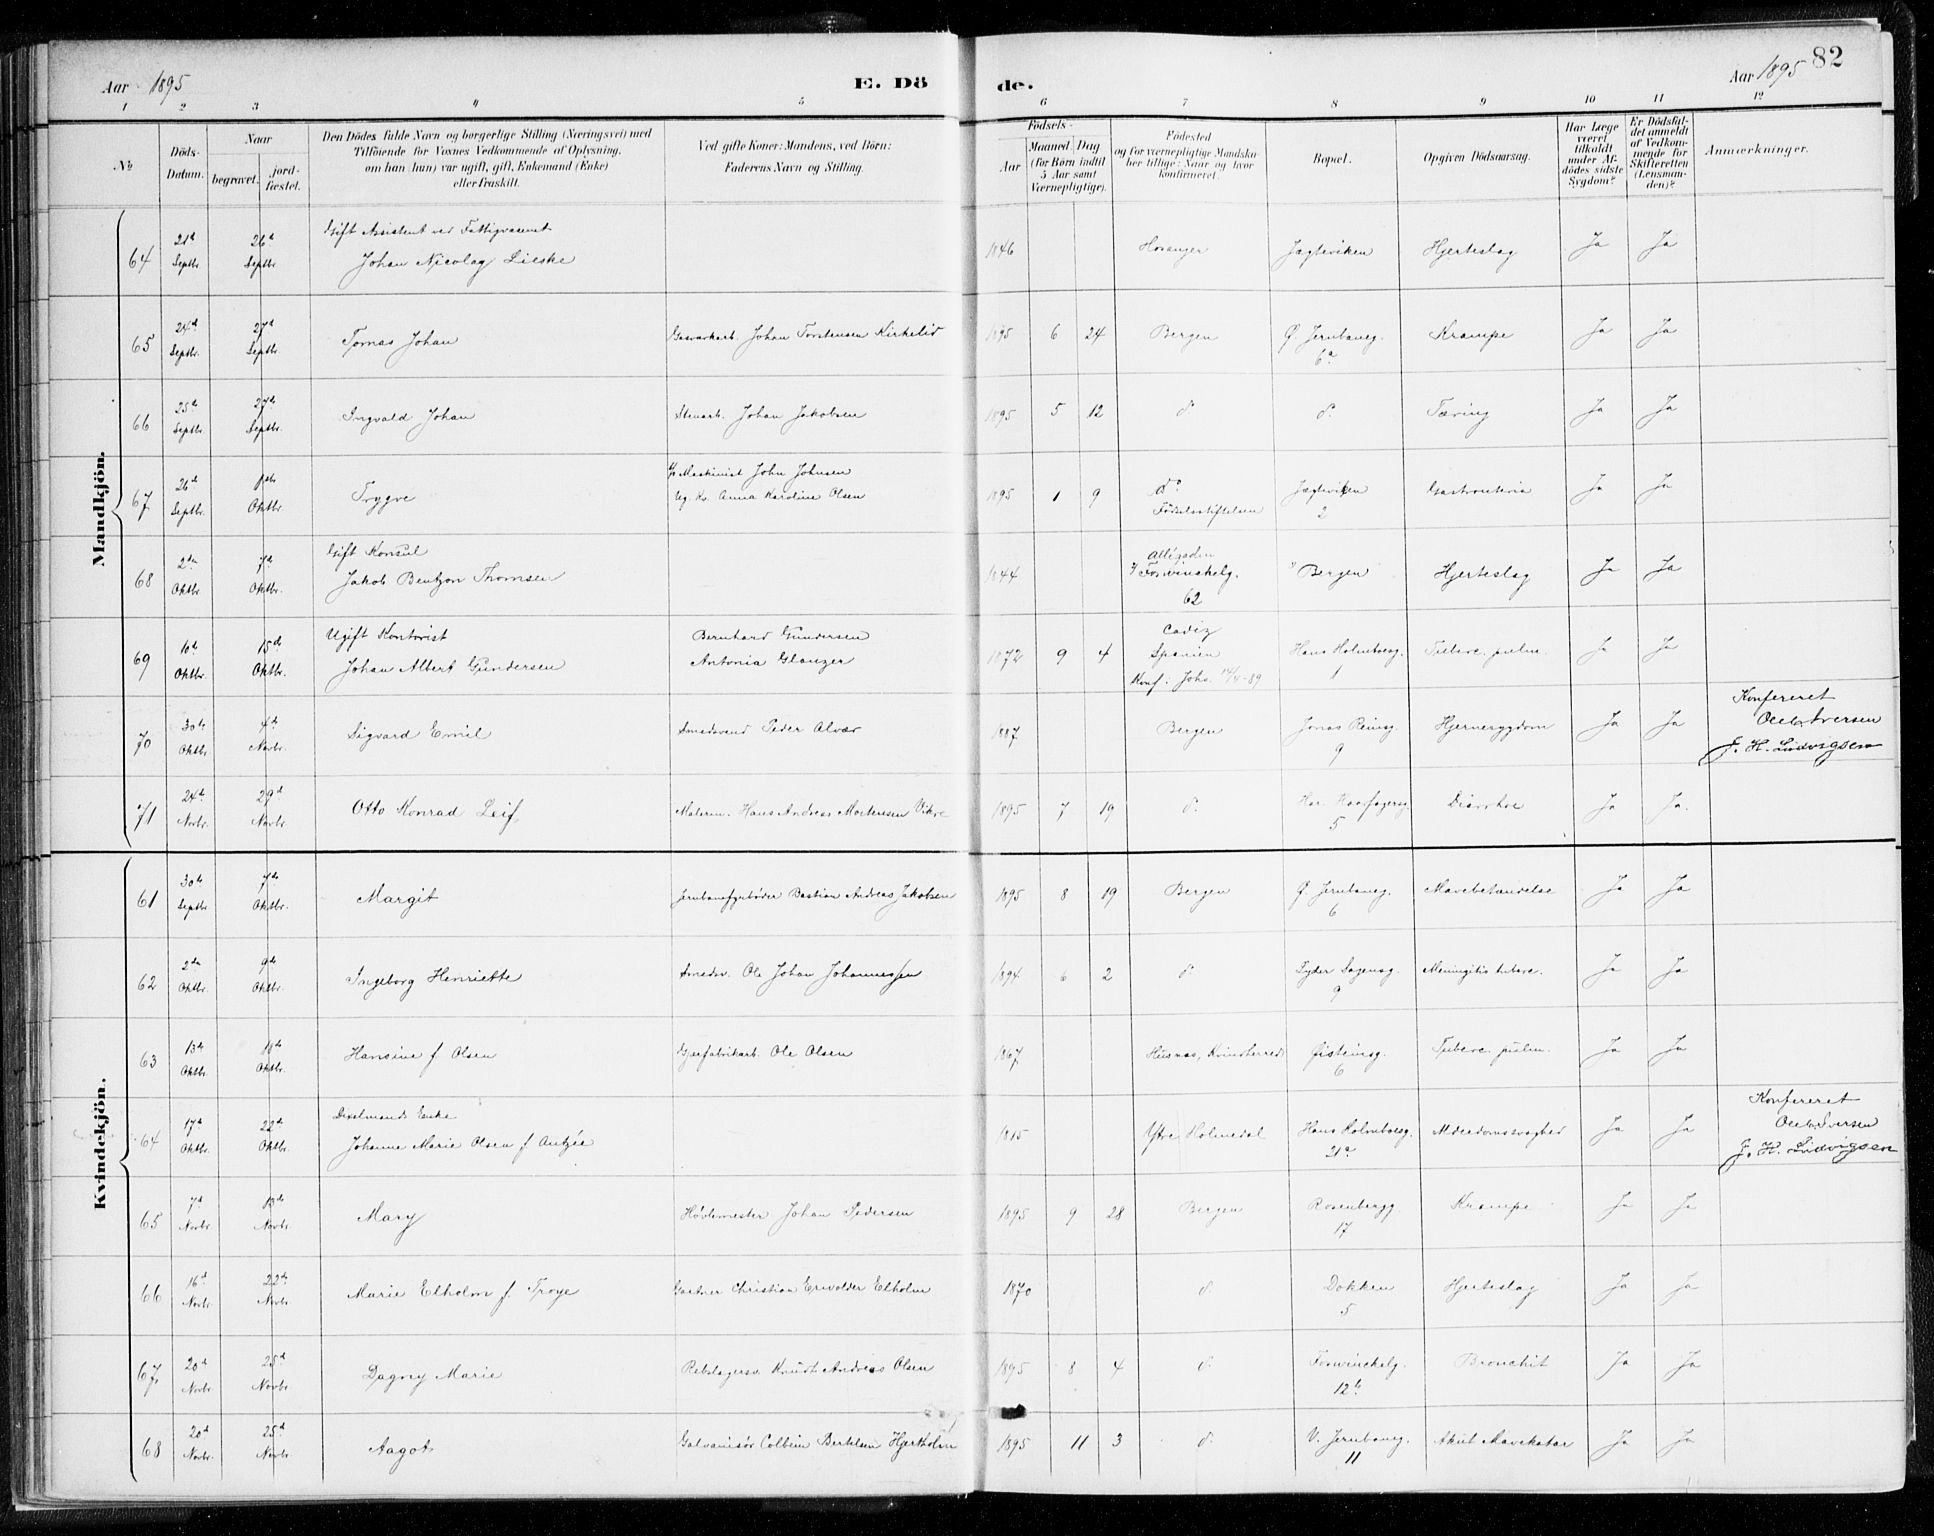 Aar 1895
E. Dö
1 2 3 4 5
No
Döds-Datum.
Naar
begravet. jordfæstet.
Den Dödes fulde Navn og borgerlige Stilling (Næringsvei) med
Tilföiende for Voxnes Vedkommende af Oplysning,
om han (hun) var ugift, gift, Enkemand (Enke)
eller fraskilt.
Ved gifte Koner: Mandens, ved Börn:
Faderens Navn og Stilling.
de.
Aar 1895
82
6 7 8 9 10 11 12
Födsels-
Aar
Maaned Dag
(for Börn indtil
5 Aar samt
Værnepligtige).
Födested
og for værnepligtige Mandskaber tillige: Naar og hvor
konfirmeret.
Bopæl.
Opgiven Dödsaarsag.
Har Læge
været
tilkaldt
under Afdödes sidste
Sygdom?
Er Dödsfaldet anmeldt
af Vedkommende for
Skifteretten
(Lensmanden)?
Anmærkninger.
Mandkjön.
64 21d Septbr. 26d Septbr. Gift Assistent ved Fattigvæsenet
Johan Nicolay Lieske 1846 Hosanger Jægteviken Hjerteslag Ja Ja
65 24d Septbr. 27d Septbr. Tomas Johan Gasværkarb. Johan Torstensen Kirkelid 1895 6 24 Bergen Ø. Jernbaneg. 6a Krampe Ja Ja
66 25d Septbr. 27d Septbr. Ingvald Johan Stenarb. Johan Jakobsen 1895 5 12 do do Tæring Ja Ja
67 26d Septbr. 1ste Oktbr. Trygve Maskinist John Johnsen
Ug. Kv. Anna Karoline Olsen 1895 1 9 do Fødselsstiftelsen Jægteviken 2 Gastroenteria Ja Ja
68 2den Oktbr. 7d Oktbr. Gift Konsul
Jakob Bentzon Thomsen 1844 Allégaden Fosswinckelg. 62 Bergen Hjerteslag Ja Ja
69 10d Oktbr. 15d Oktbr. Ugift Kontorist
Johan Albert Gundersen Bernhard Gundersen
Antonia Glanzer 1872 9 4 Cadiz Spanien
Konf: Johs. 14/4-89 Hans Holmboesg. 1 Tuberc. pulm. Ja Ja
70 30te Oktbr. 4d Novbr. Sigvard Emil Smedsvend Peder Alvær 1887 Bergen Jonas Reinsg. 9 Hjernesygdom Ja Ja Konfereret
Iversen
J. H. Ludvigsen
71 24d Novbr. 29d Novbr. Otto Konrad Leif Malerm. Hans Andreas Mortensen Vikre 1895 7 19 do Har. Haarfagersg. 5 Diarrhoe Ja Ja.
Kvindekjön.
61 30te Septbr 7de Oktbr. Margit Jernbanefyrbøder Bastian Andreas Jakobsen 1895 8 19 Bergen Ø. Jernbaneg. 6 Mavebetændelse Ja Ja
62 2den Oktbr. 9de Oktbr. Ingeborg Henriette Smedsv. Ole Johan Johannessen 1894 6 2 do Lyder Sagensg. 9 Meningitis tuberc. Ja Ja
63 13de Oktbr. 18de Oktbr. Hansine f. Olsen Gjærfabrikarb. Ole Olsen 1867 Husnæs, Kvindherred Øisteinsg. 6 Tuberc. pulm. Ja Ja
64 17d Oktbr. 22de Oktbr. Dixelmands Enke
Johanne Marie Olsen f. Antzée 1815 Ytre Holmedal Hans Holmboesg. 21a Alderdomssvaghed Ja Ja Konfereret
Iversen
J. H. Ludvigsen
65 7d Novbr. 13d Novbr. Mary Høvlemester Johan Pedersen 1895 9 28 Bergen Rosenbergg. 17 Krampe Ja Ja
66 16d Novbr. 22de Novbr. Marie Elholm f. Troye Gartner Christian Elholm 1870 do Dokken 5 Hjerteslag Ja Ja
67 20d Novbr. 25d Novbr. Dagny Marie Rebslagersv. Knudt Andreas Olsen 1895 8 4 do Foswinckelg. 12b Bronchit Ja Ja
68 20d Novbr. 25d Novbr. Aagot Galvanisør Colbein Bertelsen Hjertholm 1895 11 3 do V. Jernbaneg. 11 Akut Mavekatar Ja Ja